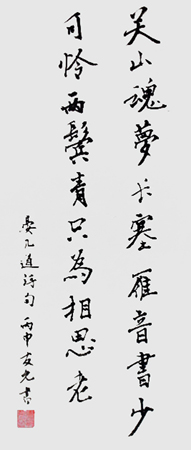 关山魂夢长塞雁音書少
可怜两鬓青只為相思老
晏几道诗句 丙申友光書